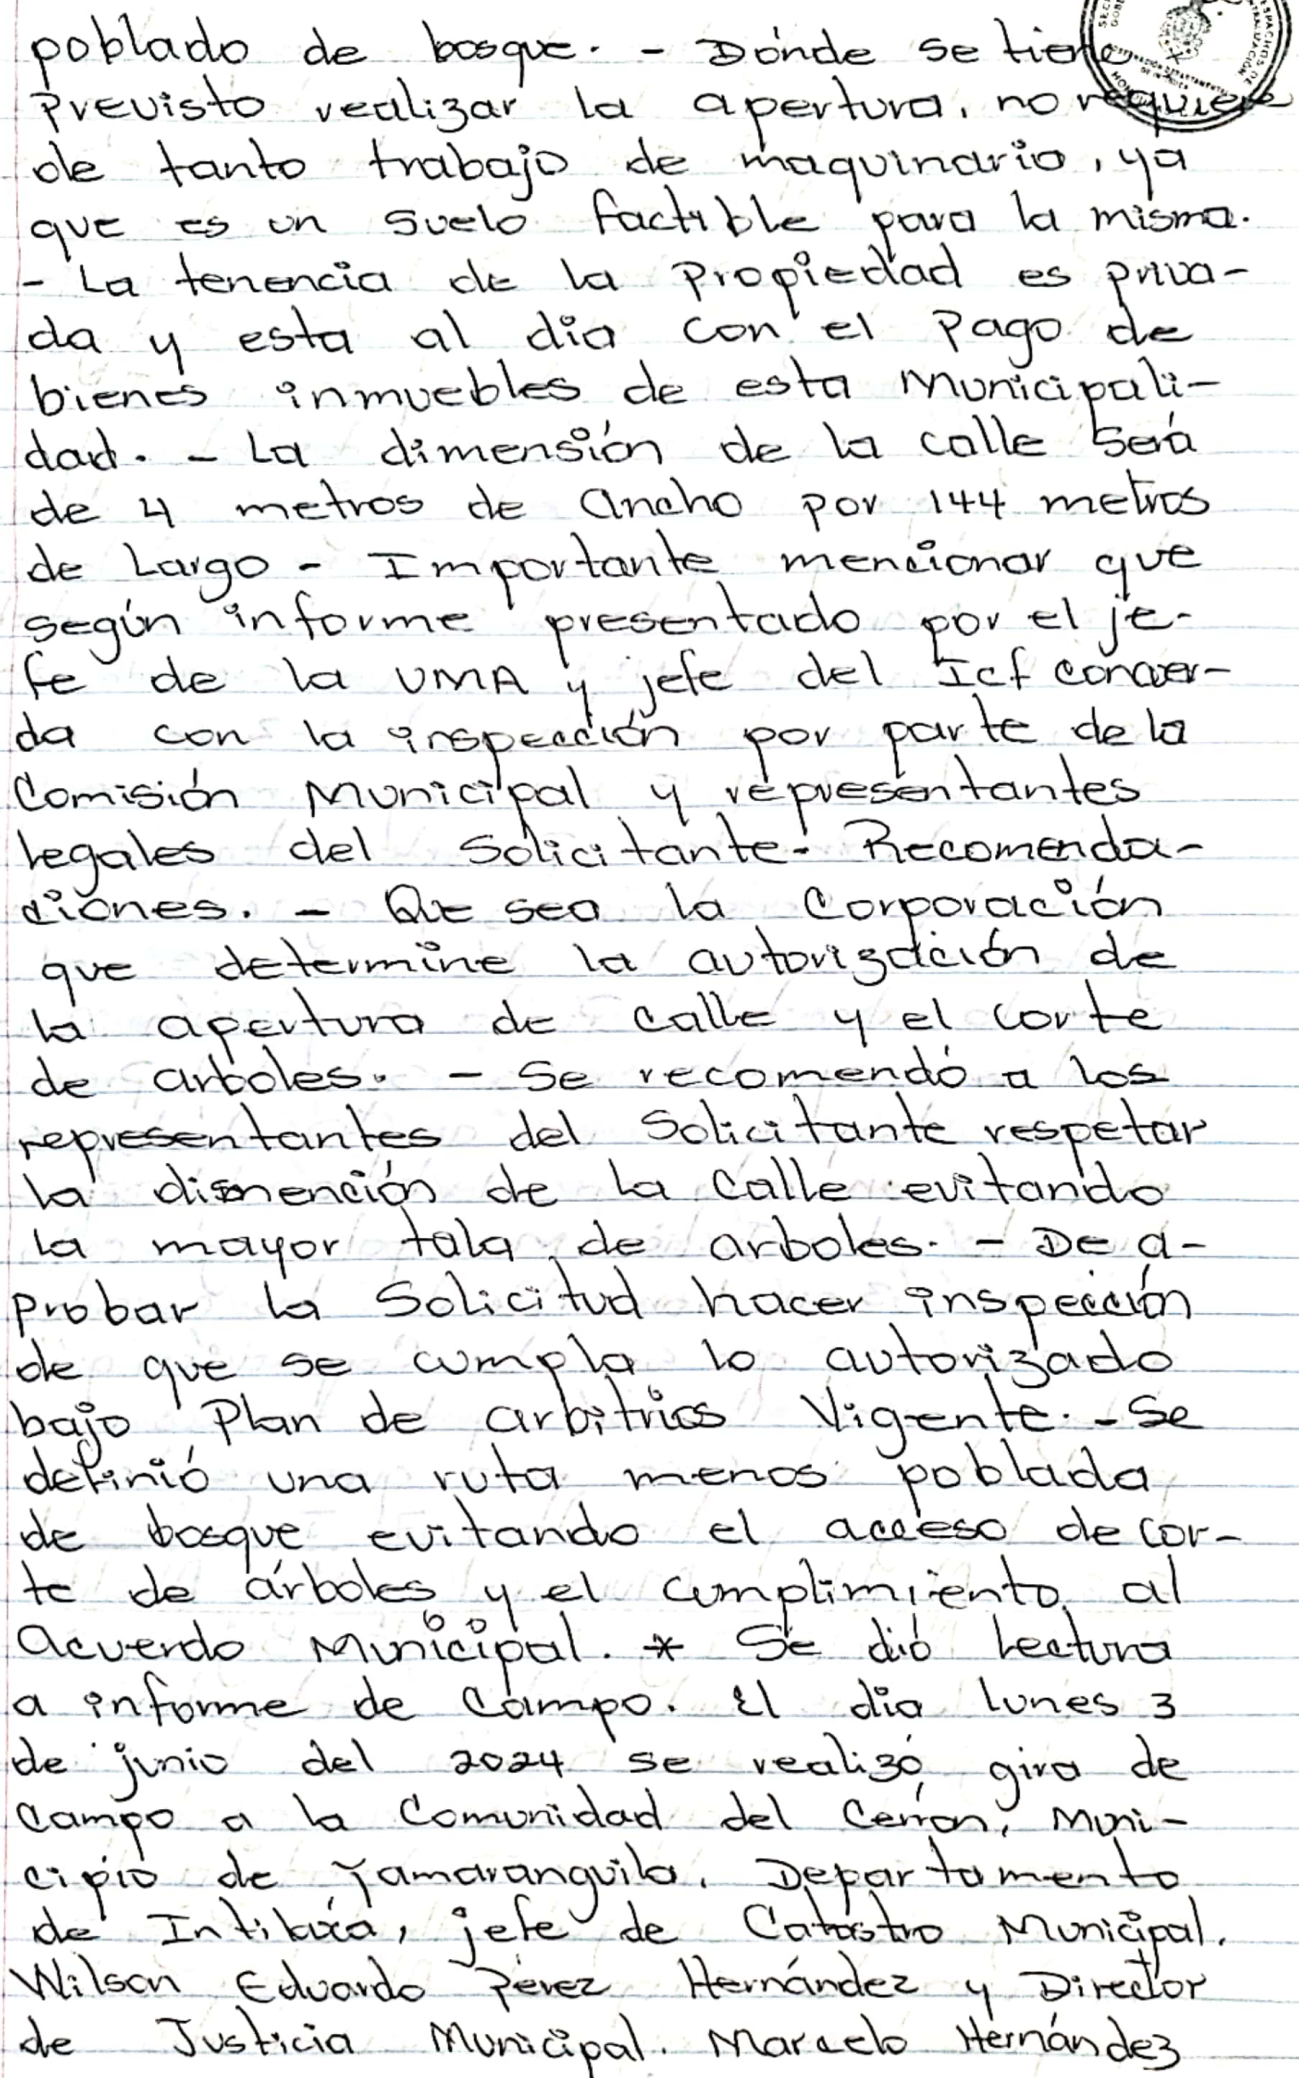 poblado de bosque. - Dónde se tiene
Previsto realizar la apertura, no requiere
de tanto trabajo de maquinario, ya
que es un suelo factible para la misma.
- La tenencia de la Propiedad es priva-
da y esta al dia con el Pago de
bienes inmuebles de esta Municipali-
dad. - La dimensión de la calle Será
de 4 metros de ancho por 144 metros
de Largo - Importante mencionar que
según informe presentado por el je-
fe de la UMA y jefe del Icf concuer-
da con la inspección por parte de la
Comisión Municipal y représentantes
legales del Solicitante. Recomenda-
ciones. - Que sea la Corporación
que determine la autorización de
la apertura de calle y el corte
de arboles. - Se recomendó a los
representantes del Solicitante respetar
la dismención de la Calle evitando
la mayor tala de arboles. - De a-
Probar la Solicitud hacer inspección
de que se cumpla lo autorizado
bajo Plan de arbitrios Vigente. - Se
definió una ruta menos poblada
de bosque evitando el acceso de Cor-
te de árboles y el cumplimiento al
Acuerdo Municipal. * Se dió Lectura
a informe de Campo. El dia lunes 3
de junio del 2024 se realizó gira de
Campo a la Comunidad del Cerrón, Muni-
cipio de Yamaranguila, Departamento
de Intibucá, jefe de Catastro Municipal.
Wilson Eduardo Pérez Hernández y Director
de Justicia Municipal. Marcelo Hernández